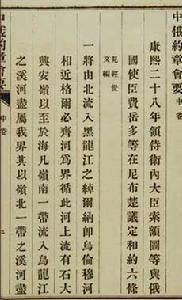 中俄約章會要 中卷
康熙二十八年領侍衛內大臣索額圖等與俄
國使臣費岳多等在尼布楚議定和約六條
見經世
文編
一將由北流入黑龍江之綽爾納卽烏倫穆河
相近格爾必齊河爲界循此河上流有石大
興安嶺以至於海凡嶺南一帶流入黑龍江
之溪河盡屬我界其以嶺北一帶之溪河盡
俄約章會要 中卷